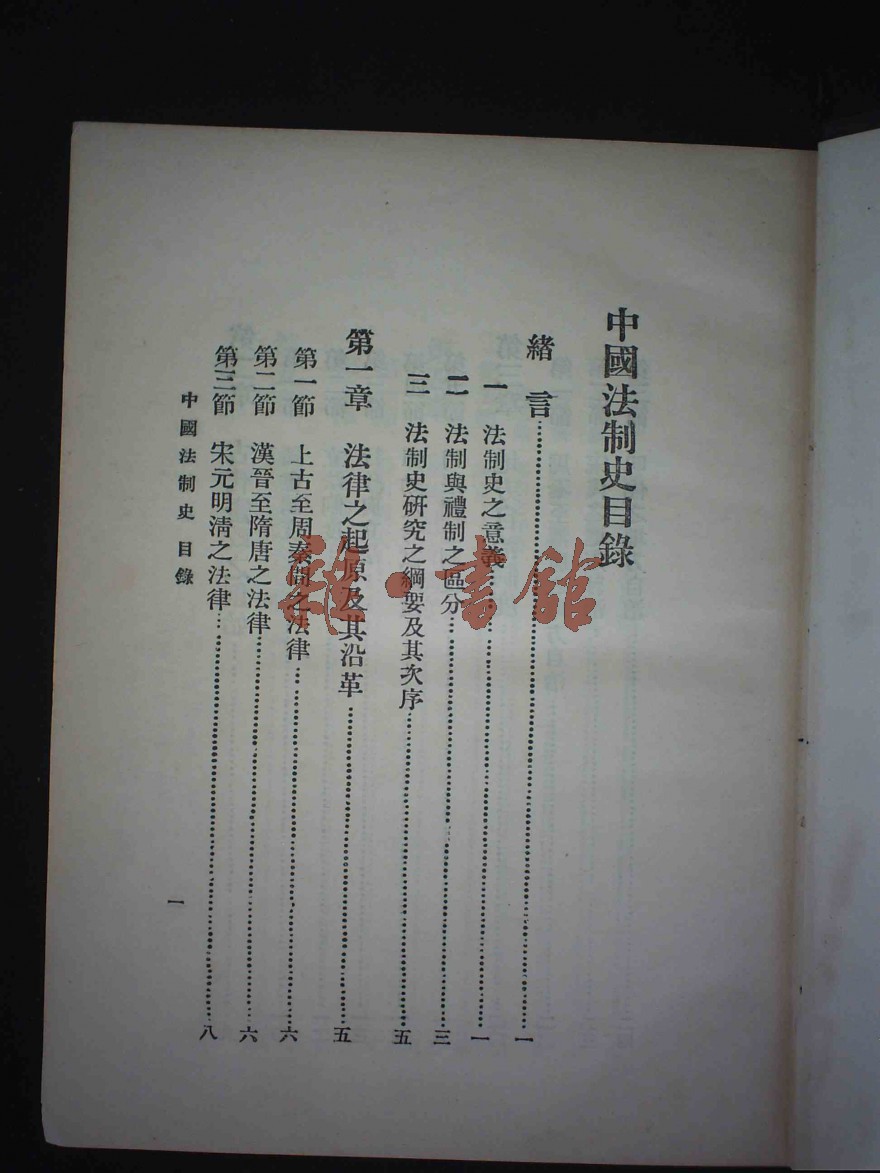 中國法制史目錄
緒言……………………一
一 法制史之意義……………………一
二 法制與禮制之區分……………………三
三 法制史研究之綱要及其次序……………………五
第一章 法律之起原及其沿革……………………五
第一節 上古至周秦間之法律……………………六
第二節 漢晉至隋唐之法律……………………六
第三節 宋元明淸之法律……………………八
中國法制史 目錄
一
雜·書館